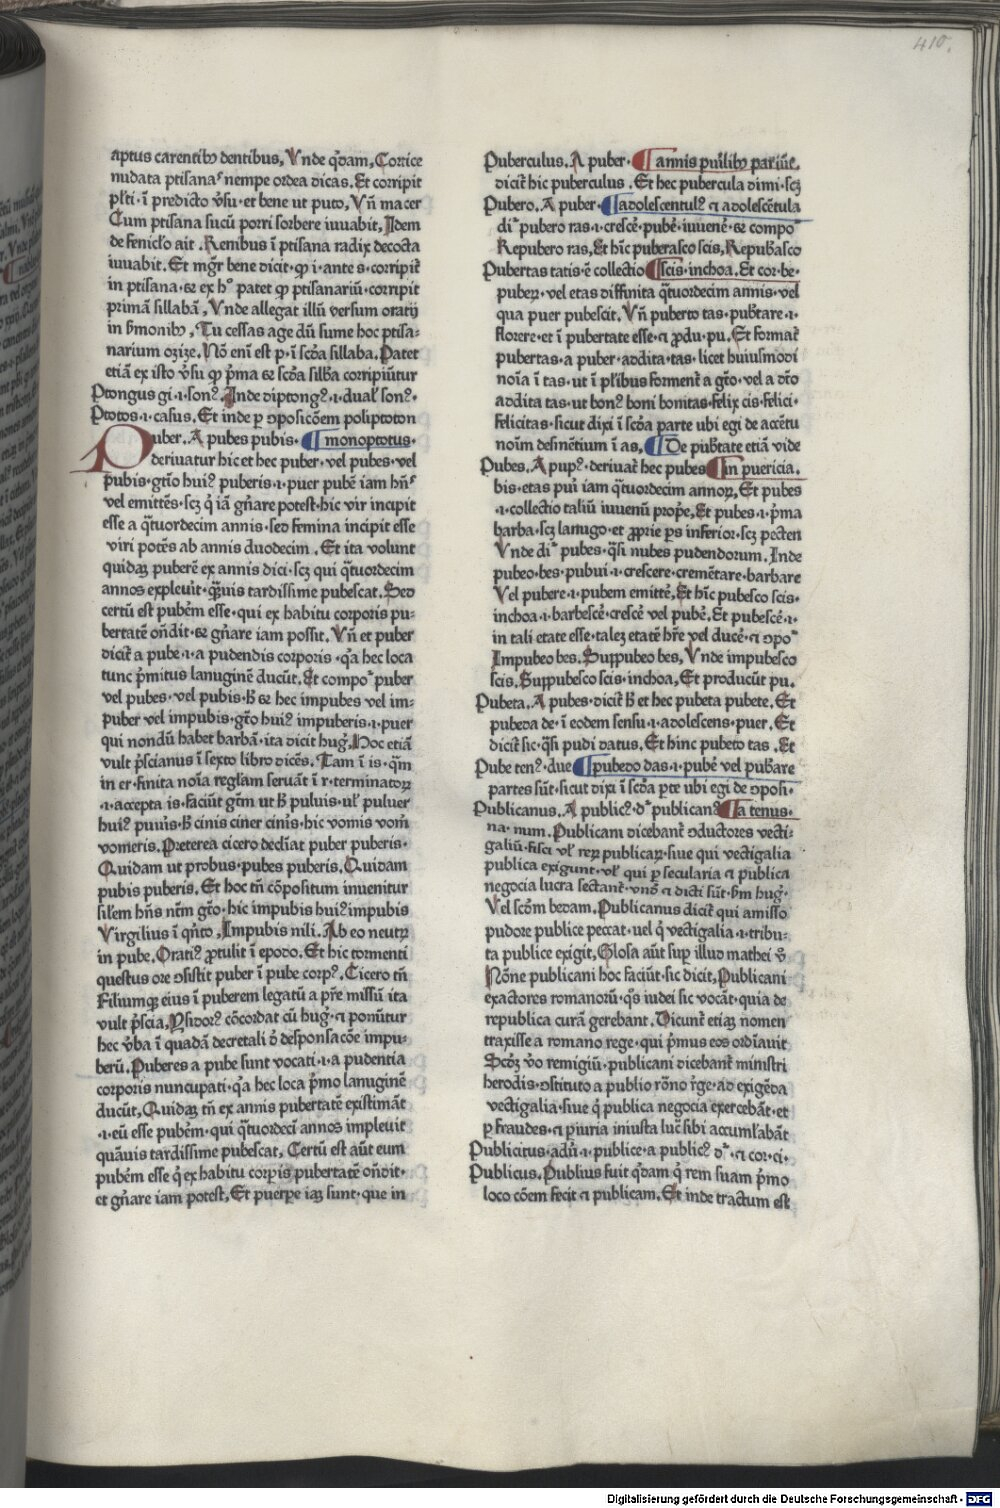 410.
aptus carentibꝰ dentibus, Vnde q̄dam, Corrice
nudata ptisanaʳ nempe ordea dicas. Et corripit
pl̄ti · ī predicto v̓su · et bene ut puto, Vn̄ macer
Cum ptisana sucū porri sorbere iuuabit, Idem
de feniclo ait. Renibus ī ptisana radix decocta
iuuabit. Et mḡr bene dicit · ꝙ i · ante s · corripit̄
in ptisana · ⁊ ex h° patet ꝙ ptisanariū · corripit
primā sillabā, Vnde allegat illū versum oratij
in ẜmonibꝰ, Tu cessas age dū sume hoc ptisa-
narium ozize. Nō enī est p · ī scd̄a sillaba. Patet
etiā ex isto v̓su ꝙ p̄ma ⁊ scd̄a silba corripiūtur
Ptongus gi · i · sonꝰ. Inde diptongꝰ · i · dual̓ sonꝰ ·
Ptotos · i · casus. Et inde p ꝯposicōem poliptoton
Puber. A pubes pubis · ¶ monoptotus ·
deriuatur hic et hec puber · vel pubes · vel
pubis · gt̄io huiꝰ puberis · i · puer pubē iam hn̄s
vel emittēs · scꝫ q̓ iā gn̄are potest · hic vir incipit
esse a q̄tuordecim annis · sed femina incipit esse
viri potēs ab annis duodecim. Et ita volunt
quidaꝫ puberē ex annis dici · scꝫ qui q̄tuordecim
annos expleuit · q̄uis tardissime pubescat. Sed
certū est pubēm esse · qui ex habitu corporis pu-
bertatē on̄dit · ⁊ gn̄are iam possit. Vn̄ et puber
dicit̄ a pube · i · a pudendis corporis · q̓a hec loca
tunc p̄mitus lanuginē ducūt. Et compoᵗ puber
vel pubes · vel pubis · h̓ ⁊ hec impubes vel im-
puber vel impubis · gt̄io huiꝰ impuberis · i · puer
qui nondū habet barbā · ita dicit hug̓. Hoc etiā
vult p̄scianus ī sexto libro dicēs. Tam ī is · q̄m
in er · finita noīa regl̓am seruāt ī r · terminatoꝝ
· i · accepta is · faciūt gt̄m ut h̓ puluis · ul̓ puluer
huiꝰ puuīs · h̓ cinis ciner cin̓is · hic vomis vom̄
vomeris. Preterea cicero decliat puber puberis ·
Quidam ut probus · pubes puberis. Quidam
pubis puberis. Et hoc tn̄ cōpositum inuenitur
sil̓em hn̄s nt̄m gt̄o · hic impubis huiꝰ impubis
Virgilius ī qn̄to, Impubis nili. Ab eo neutꝝ
in pube. Oratiꝰ ꝓtulit ī epodo. Et hic tormenti
questus ore ꝯsistit puber ī pube corpꝰ. Cicero tn̄
Filiumqꝫ eius ī puberem legatū a pr̄e missū ita
vult p̄scia, Ysidorꝰ cōcordat cū hug̓ · ⁊ ponūtur
hec v̓ba ī quadā decretali ō desponsacōe impu-
berū. Puberes a pube sunt vocati · i · a pudentia
corporis nuncupati · q̓a hec loca p̄mo lanuginē
ducūt, Quidaꝫ tn̄ ex annis pubertatē existimāt
· i · eū esse pubēm · qui q̄tuordecī annos impleuit
quāuis tardissime pubescat, Certū est aūt eum
pubēm esse q̓ ex habitu corpīs pubertatē on̄dit ·
et gn̄are iam potest, Et puerpe iaꝫ sunt · que in
Puberculus. A puber · ¶ annis puīlibꝰ pariūt̄.
dicit̄ hic puberculus. Et hec pubercula dimi · scꝫ
Pubero. A puber · ¶ adolescentulꝰ ⁊ adolescētula
diʳ pubero ras · i · crescē · pubē · iuuenē · ⁊ compoᵗ
Repubero ras, Et hīc puberasco scis, Repubasco
Pubertas tatis · ē collectio ¶ scis · inchoa. Et cor · be ·
pubeꝝ · vel etas diffinita q̄tuordecim annis · vel
qua puer pubescit. Vn̄ puberto tas · pubtare · i ·
florere · et ī pubertate esse · ⁊ ꝓdu · pu. Et format̄
pubertas · a puber · addita · tas · licet huiusmodi
noīa ī tas · ut ī pl̄ibus forment̄ a gt̄o · vel a dt̄o
addita tas · ut bonꝰ boni bonitas · felix cis · felici ·
felicitas · sicut dixi ī scd̄a parte ubi egi de accētu
noīm desinētium ī as, ¶ De pubtate etiā vide
Pubes. A pupꝰ · deriuat̄ hec pubes ¶ in puericia.
bis · etas pui̓ iam q̄tuordecim annoꝝ, Et pubes
· i · collectio taliū iuuenū prop̄e, Et pubes · i · p̄ma
barba · scꝫ lanugo · et ꝓprie ps inferior · scꝫ pecten
Vnde diʳ pubes · q̄si nubes pudendorum. Inde
pubeo · bes · pubui · i · crescere · cremētare · barbare
Vel pubere · i · pubem emittē, Et hīc pubesco scis ·
inchoa · i · barbescē · crescē vel pubē. Et pubescē · i ·
in tali etate esse · taleꝫ etatē hr̄e vel ducē · ⁊ ꝯpoᵗ
Impubeo bes. Suppubeo bes, Vnde impubesco
scis. Suppubesco scis · inchoa, Et producūt pu.
Pubeta. A pubes · dicit̄ h̓ et hec pubeta pubete. Et
pubeda de · ī eodem sensu · i · adolescens puer. Et
dicit̄ sic · q̄si pudi datus. Et hinc pubeto tas. Et
Pube tenꝰ · due ¶ pubedo das · i · pubē vel pubare
partes sūt · sicut dixi ī scd̄a pte ubi egi de ꝯposi ·
Publicanus. A publicꝰ · dʳ publicanꝰ ¶ a tenus ·
na · num. Publicani dicebant̄ ꝯductores vecti-
galiū · fisci vl̓ reꝝ publicaꝝ · siue qui vectigalia
publica exigunt · vl̓ qui p secularia ⁊ publica
negocia lucra sectant̄ · vnō ⁊ dicti sūt · ẜm hug̓ ·
Vel scd̄m bedam. Publicanus dicit̄ qui amisso
pudore publice peccat · uel q̓ vectigalia · i · tribu-
ta publice exigit, Glosa aūt sup illud mathei v̊
Nōne publicani hoc faciūt · sic dicit, Publicani
exactores romanorū · q̄s iudei sic vocāt · quia de
republica curā gerebant. Dicunt etiaꝫ nomen
traxisse a romano rege · qui p̄mus eos ordīauit
Scd̄ꝫ v̊o remigiū · publicani dicebant̄ ministri
herodis · ꝯstituto a publio rōno r̓ge · ad exigēda
vectigalia · siue q̓ publica negocia exercebāt · et
p fraudes · ⁊ piuria iniusta luc̄ sibi accuml̓abāt
Publicitus · adū · i · publice · a publicꝰ dʳ · ⁊ cor · ci ·
Publicus. Publius fuit q̄dam q̓ rem suam p̄mo
loco cōem fecit ⁊ publicam. Et inde tractum est
Digitalisierung gefördert durch die Deutsche Forschungsgemeinschaft - DFG